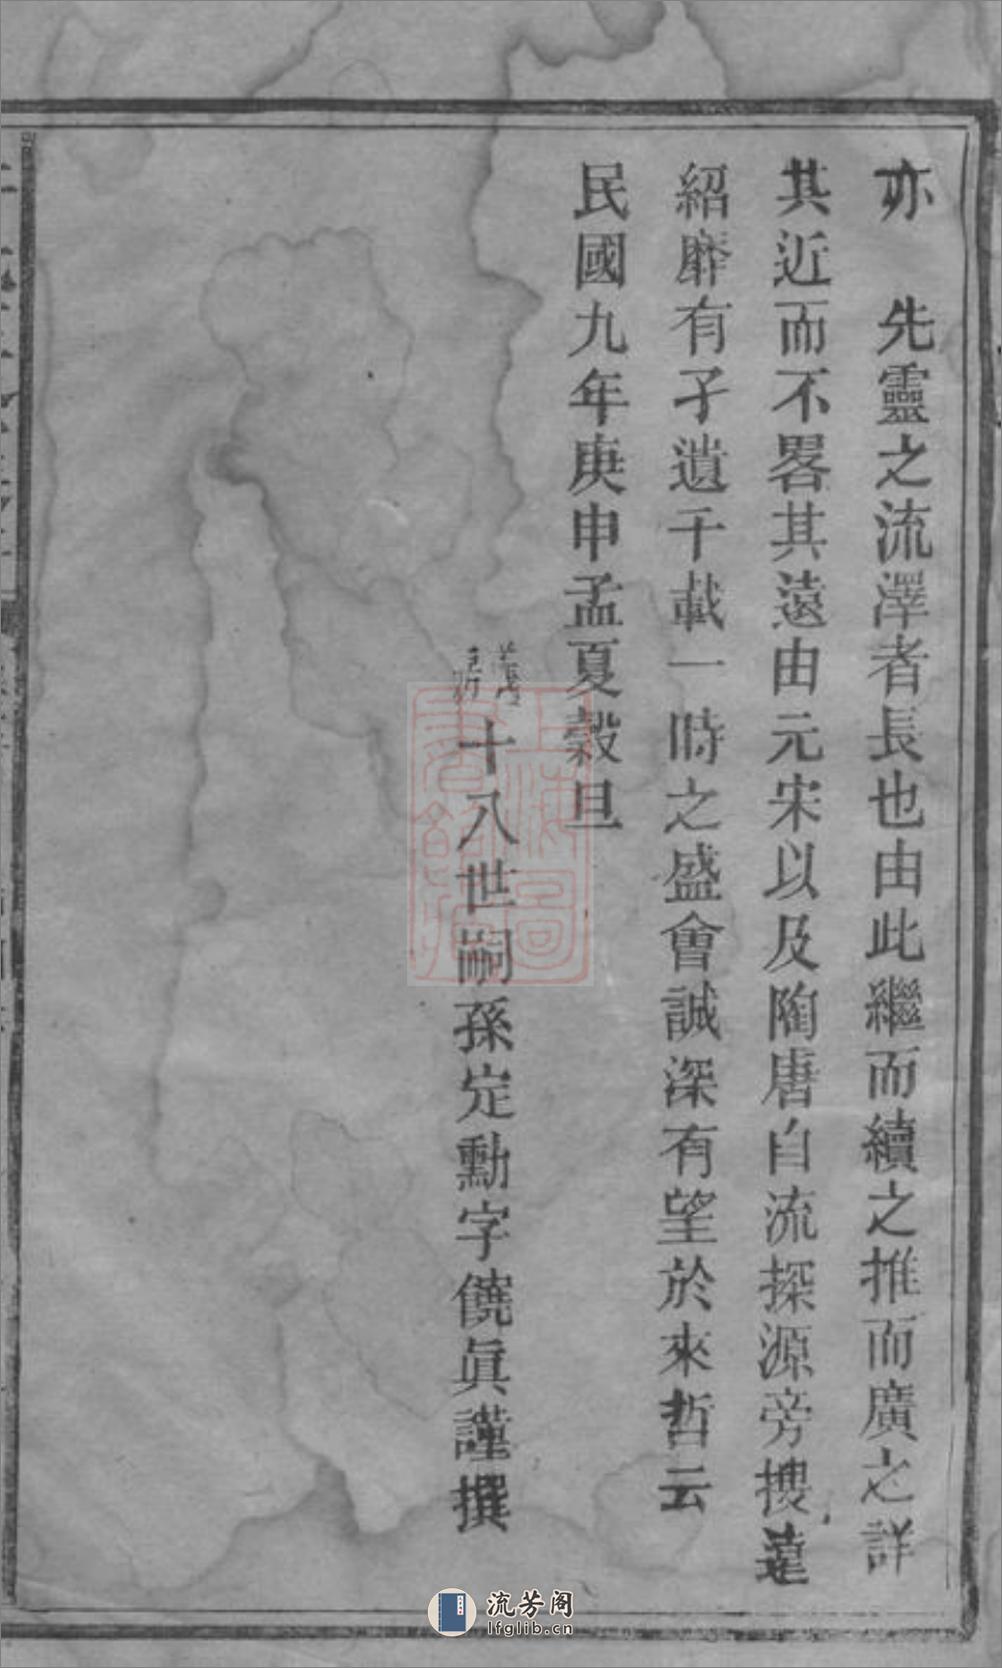 亦　先靈之流澤者長也由此繼而續之推而廣之詳
其近而不畧其遠由元宋以及陶唐自流探源旁搜遠
紹靡有孑遺千載一時之盛會誠深有望於來哲云
民國九年庚申孟夏穀旦
十八世嗣孫定勳字饒眞謹撰
上海圖書館藏
流芳阁
lfglib.cn